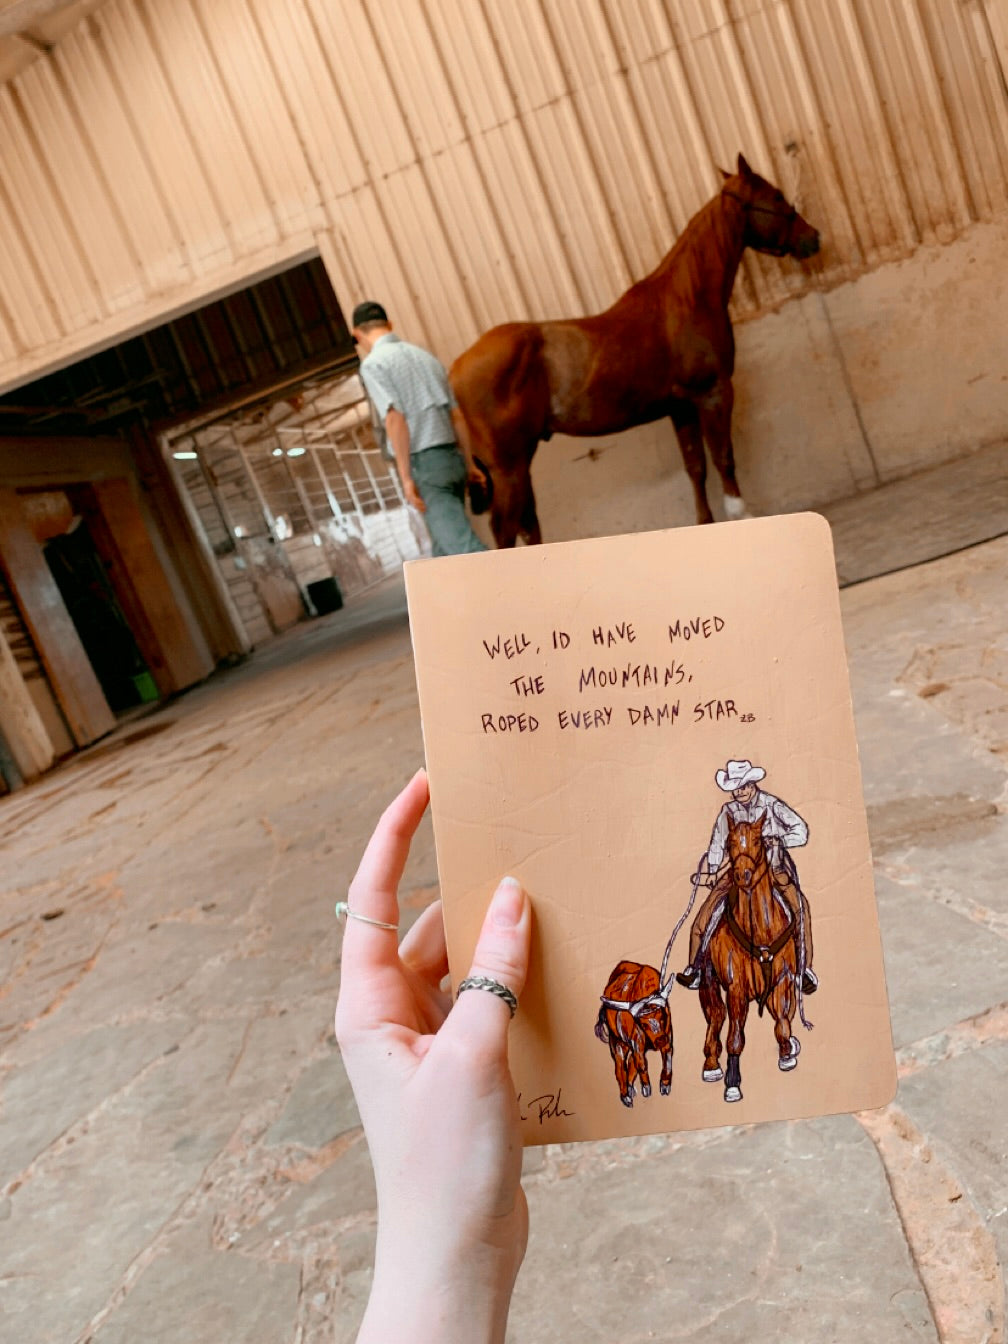 WELL, ID HAVE MOVED
THE MOUNTAINS,
ROPED EVERY DAMN STAR
ZB